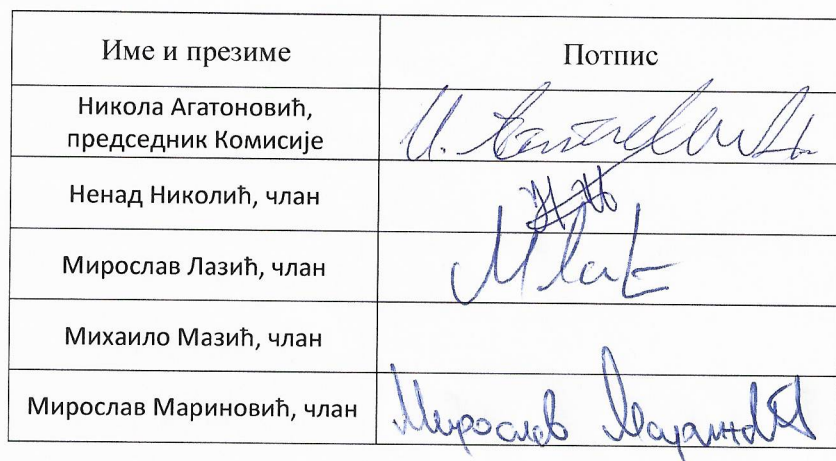 Име и презиме
Потпис
Никола Агатоновић,
председник Комисије
Ненад Николић, члан
Мирослав Лазић, члан
Михаило Мазић, члан
Мирослав Мариновић, члан
Мирослав